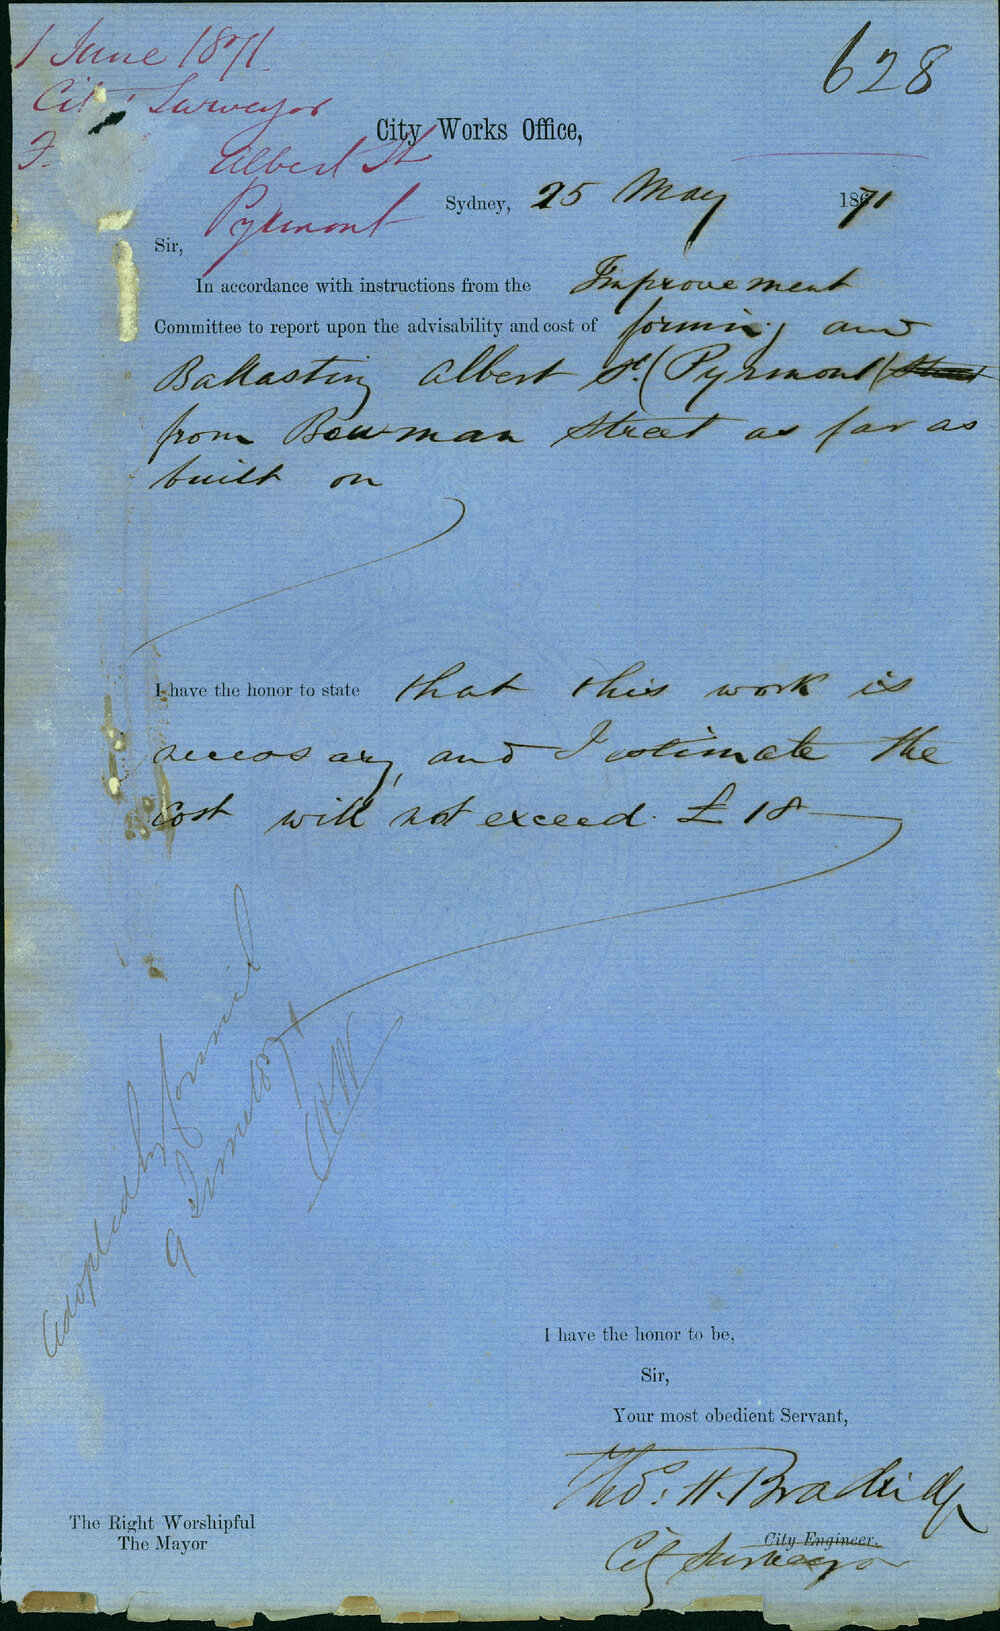 1 June 1871
City Surveyor
Albert St
Pyrmont
628
City Works Office,
Sydney, 25 May 1871
Sir,
In accordance with instructions from the Improvement
Committee to report upon the advisability and cost of forming and
Ballasting Albert St. (Pyrmont)
from Bowman Street as far as
built on
I have the honor to state that this work is
necessary, and I estimate the
cost will not exceed £18
Adopted by Council
9 June 1871
I have the honor to be,
Sir,
Your most obedient Servant,
Thos. H. Bradridge
City Engineer.
City Surveyor
The Right Worshipful
The Mayor